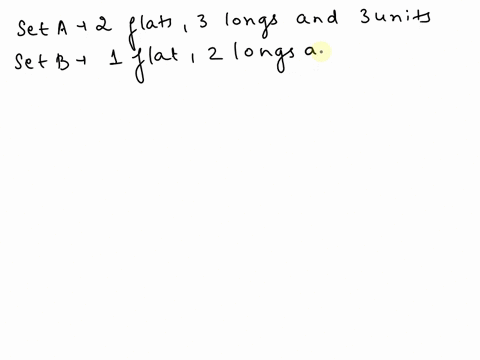 Set A → 2 flats, 3 longs and 3 units
Set B → 1 flat, 2 longs a